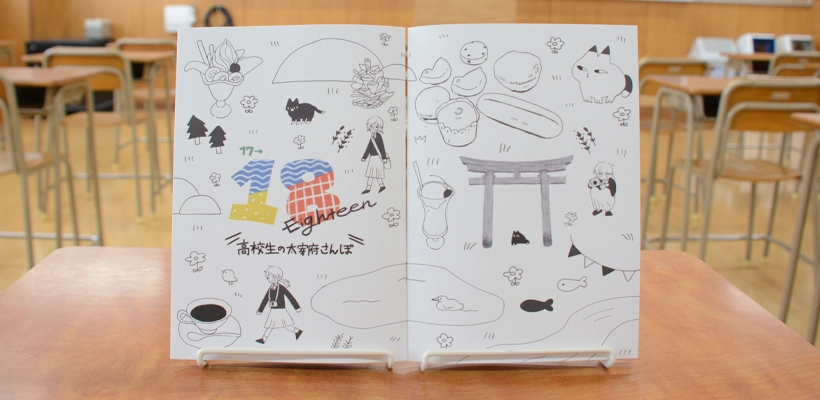 17→
18
Eighteen
高校生の太宰府さんぽ